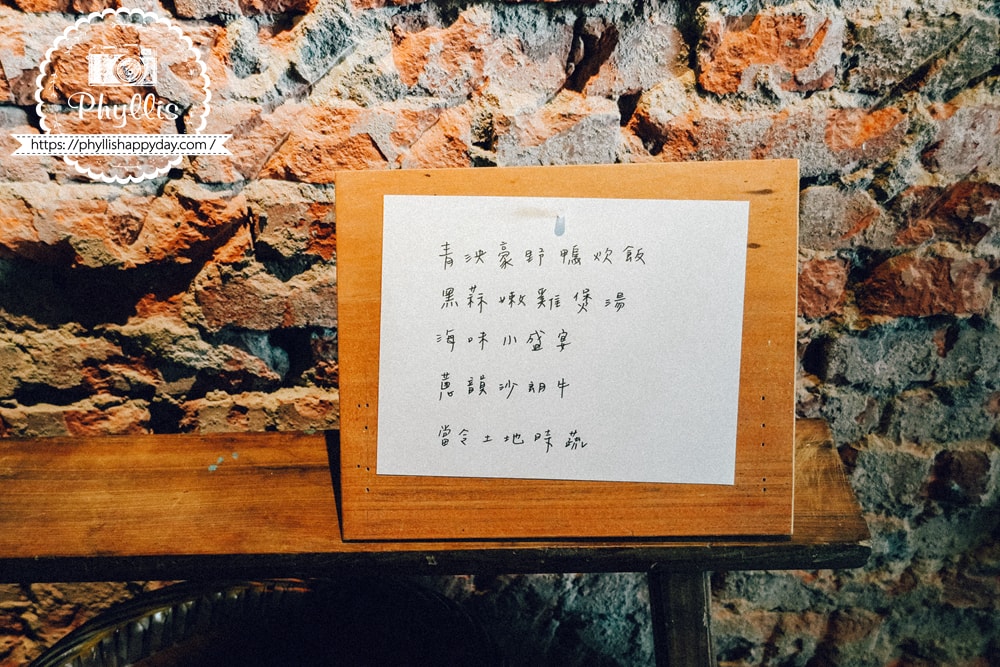 Phyllis
https://phyllishappyday.com /
青泱豪野鴨炊飯
黑蒜嫩雞煲湯
海味小盛宴
蔥韻沙朗牛
當令土地時蔬